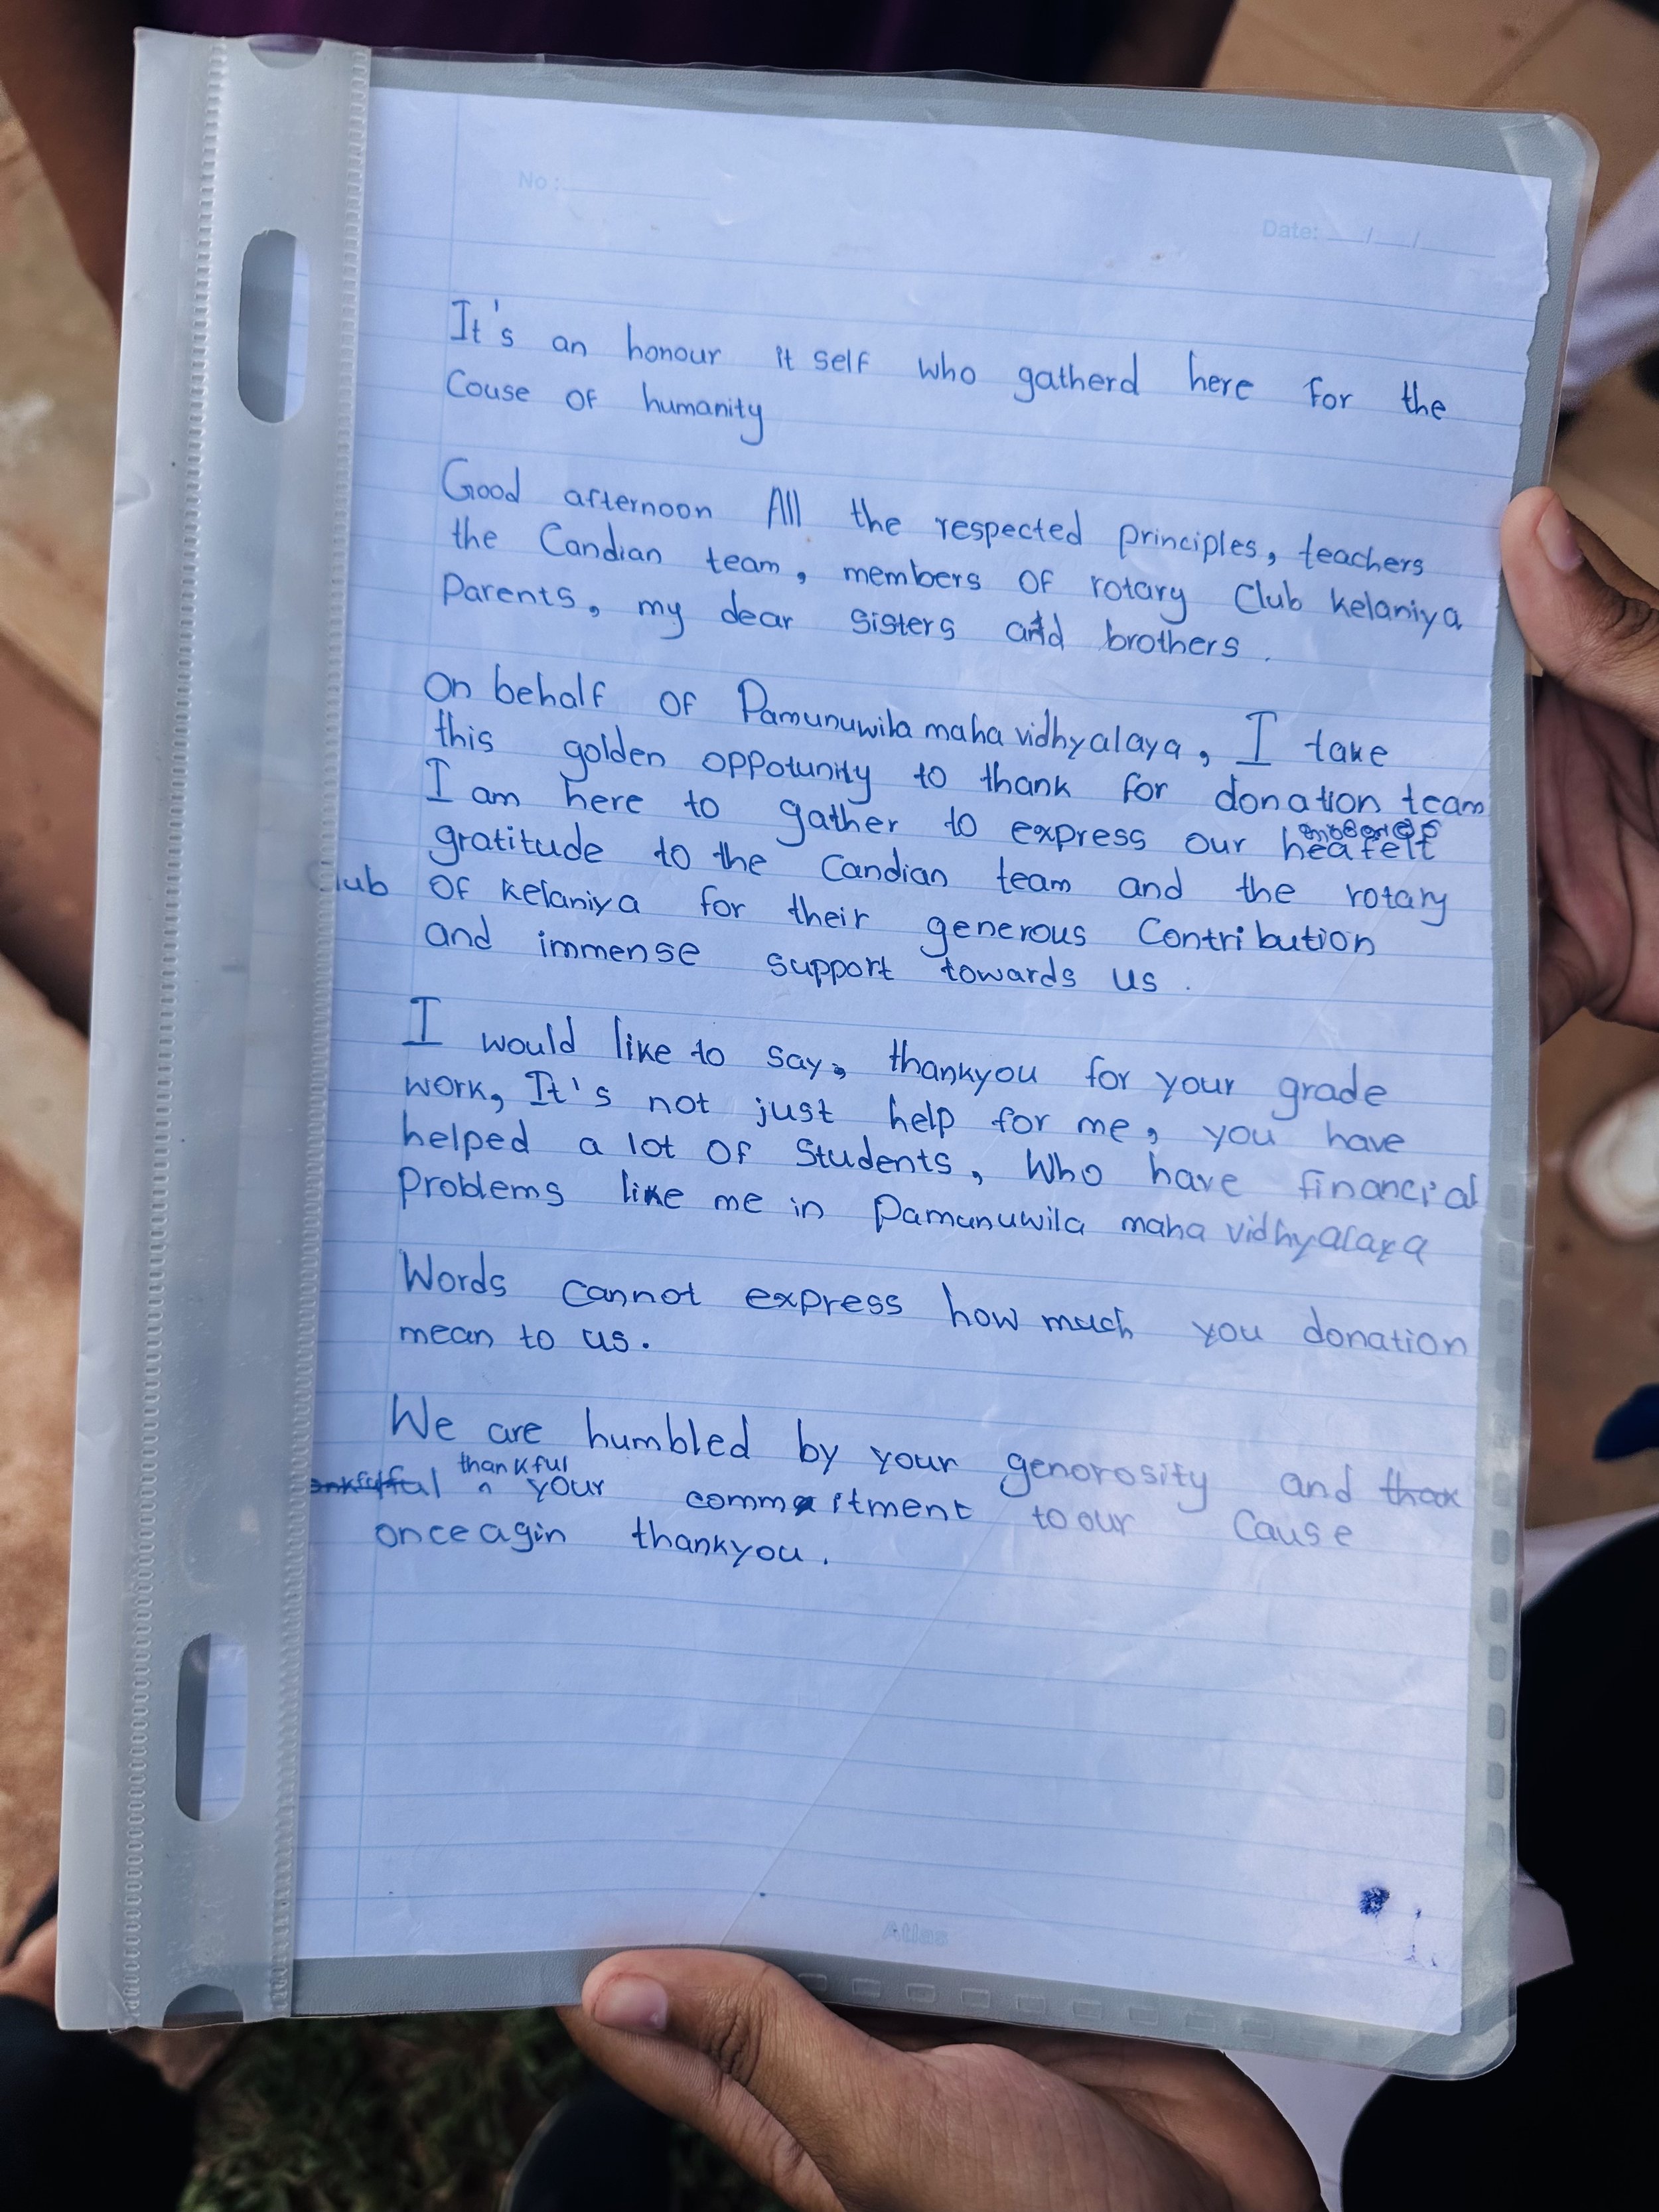 No :
Date: / /
It's an honour it self who gatherd here for the
Couse of humanity
Good afternoon All the respected principles, teachers
the Candian team, members of rotary Club kelaniya
Parents, my dear sisters and brothers.
On behalf of Pamunuwila maha vidhyalaya, I take
this golden oppotunity to thank for donation team
I am here to gather to express our heafelt
gratitude to the Candian team and the rotary
Club of kelaniya for their generous Contribution
and immense support towards us.
I would like to say, thankyou for your grade
work, It's not just help for me, you have
helped a lot of Students, Who have financial
Problems like me in Pamunuwila maha vidhyalaya
Words cannot express how much you donation
mean to us.
We are humbled by your generosity and
thankful
your commitment to our Cause
once agin thankyou.
Atlas